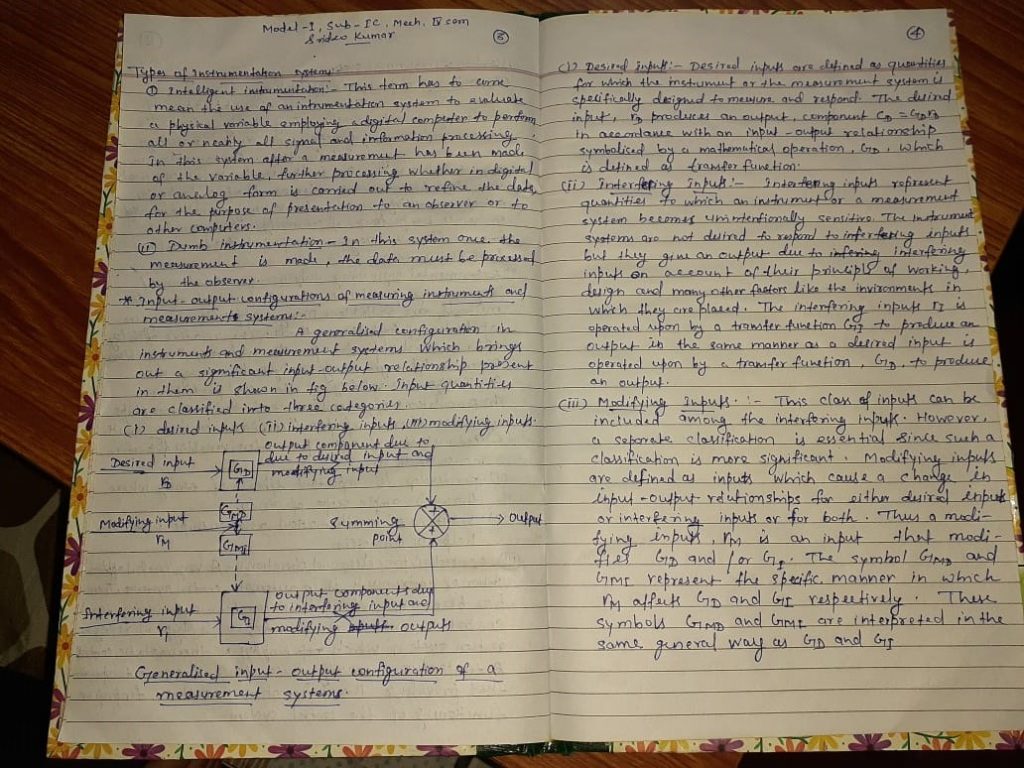 Model-I, Sub-IC, Mech, IV sem
Srideo Kumar
③
Types of Instrumentation systems:-
① Intelligent instrumentation:- This term has to come
mean the use of an intrumentation system to evaluate
a physical variable employing a digital computer to perform
all or nearly all signal and information processing.
In this system after a measurement has been made
of the variable, further processing whether in digital
or analog form is carried out to refine the data,
for the purpose of presentation to an observer or to
other computers.
(ii) Dumb instrumentation - In this system once the
measurement is made, the data must be processed
by the observer.
* Input-output configurations of measuring instruments and
measurements systems:-
A generalised configuration in
instruments and measurement systems which brings
out a significant input-output relationship present
in them is shown in fig below. Input quantities
are classified into three categories.
(i) desired inputs (ii) interfering inputs, (iii) modifying inputs.
output component due to
due to desired input and
modifying input
Desired input
rD
GD
GMD
Modifying input
rM
GMI
summing
point
Output
Interfering input
rI
GI
output components due
to interfering input and
modifying outputs
Generalised input-output configuration of a
measurement systems.
④
(i) Desired inputs:- Desired inputs are defined as quantities
for which the instrument or the measurement system is
specifically designed to measure and respond. The desired
input, rD produces an output, component CD = GDrD
in accordance with an input-output relationship
symbolised by a mathematical operation, GD, which
is defined as transfer function.
(ii) Interfering Inputs:- Interfering inputs represent
quantities to which an instrument or a measurement
system becomes unintentionally sensitive. The instrument
systems are not desired to respond to interfering inputs
but they give an output due to interfering
inputs on account of their principle of working,
design and many other factors like the invironments in
which they are placed. The interfering inputs rI is
operated upon by a transfer function GI to produce an
output in the same manner as a desired input is
operated upon by a transfer function, GD, to produce
an output.
(iii) Modifying Inputs. :- This class of inputs can be
included among the interfering inputs. However,
a separate classification is essential since such a
classification is more significant. Modifying inputs
are defined as inputs which cause a change in
input-output relationships for either desired inputs
or interfering inputs or for both. Thus a modi-
fying inputs, rM is an input that modi-
fies GD and/or GI. The symbol GMD and
GMI represent the specific manner in which
rM affects GD and GI respectively. These
symbols GMD and GMI are interpreted in the
same general way as GD and GI